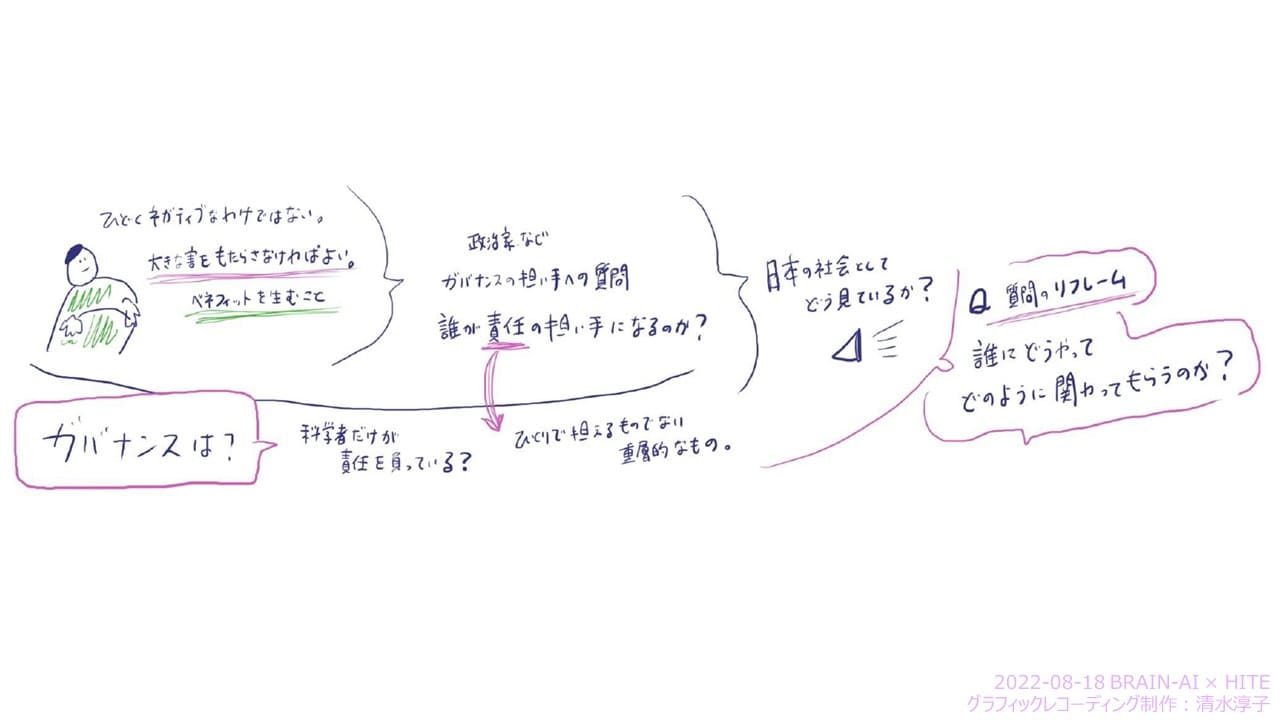 ひどくネガティブなわけではない。
大きな害をもたらさなければよい。
ベネフィットを生むこと
政治家など
ガバナンスの担い手への質問
誰が責任の担い手になるのか?
日本の社会として
どう見ているか?
Q 質問のリフレーム
誰にどうやって
どのように関わってもらうのか?
ガバナンスは?
科学者だけが
責任を負っている?
ひとりで担えるものでない
重層的なもの。
2022-08-18 BRAIN-AI × HITE
グラフィックレコーディング制作:清水淳子